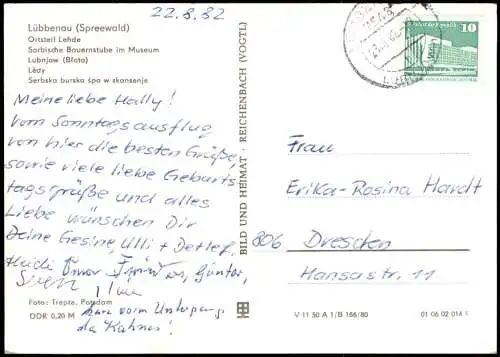 22.8.82
Lübbenau (Spreewald)
Ortsteil Lehde
Sorbische Bauernstube im Museum
Lubnjow (Błota)
Lědy
Serbska burska śpa w skansenje
Meine liebe Hally!
Vom Sonntagsausflug
von hier die besten Grüße,
sowie viele liebe Geburts
tagsgrüße und alles
Liebe wünschen Dir
Deine Gesine, Ulli + Detlef,
Heidi Günter,
Sven
kurz vorm Untergang
des Kahnes!
Foto: Trepte, Potsdam
DDR 0,20 M
BILD UND HEIMAT · REICHENBACH (VOGTL)
10
Frau
Erika-Rosina Hardt
806 Dresden
Hansastr. 11
V 11 50 A 1/B 166/80
01 06 02 014